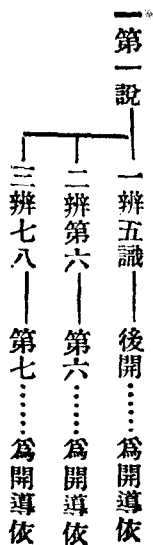 一第一說
一辨五識——後開……爲開導依
二辨第六——第六……爲開導依
三辨七八——第七……爲開導依